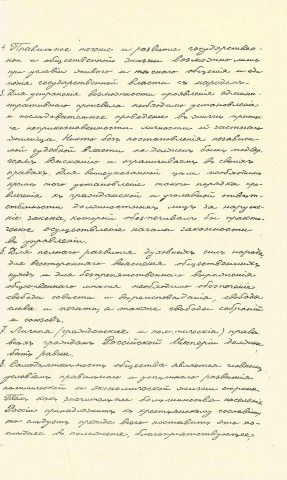 4. Правильное течение и развитие государствен-
ной и общественной жизни возможно лишь
при условии живого и тесного общения и еди-
нения государственной власти с народом.
5. Для устранения возможности проявления админи-
стративного произвола необходимо установление
и последовательное проведение в жизнь принци-
па неприкосновенности личности и частного
жилища. Никто без постановления независи-
мой судебной власти не должен быть подвер-
гаем взысканию и ограничиваем в своих
правах. Для вышеуказанной цели необходимо
кроме того установление такого порядка при-
влечения к гражданской и уголовной ответ-
ственности должностных лиц за наруше-
ние закона, который обеспечивал бы практи-
ческое осуществление начала законности
в управлении.
6. Для полного развития духовных сил народа,
для всестороннего выяснения общественных
нужд и для беспрепятственного выражения
общественного мнения необходимо обеспечение
свободы совести и вероисповедания, свободы
слова и печати, а также свободы собраний
и союзов.
7. Личные (гражданские и политические) права
всех граждан Российской Империи должны
быть равны.
8. Самодеятельность общества является главным
условием правильного и успешного развития
политической и экономической жизни страны.
Так как значительное большинство населения
России принадлежит к крестьянскому сословию,
то следует прежде всего поставить это по-
следнее в положение, благоприятствующее